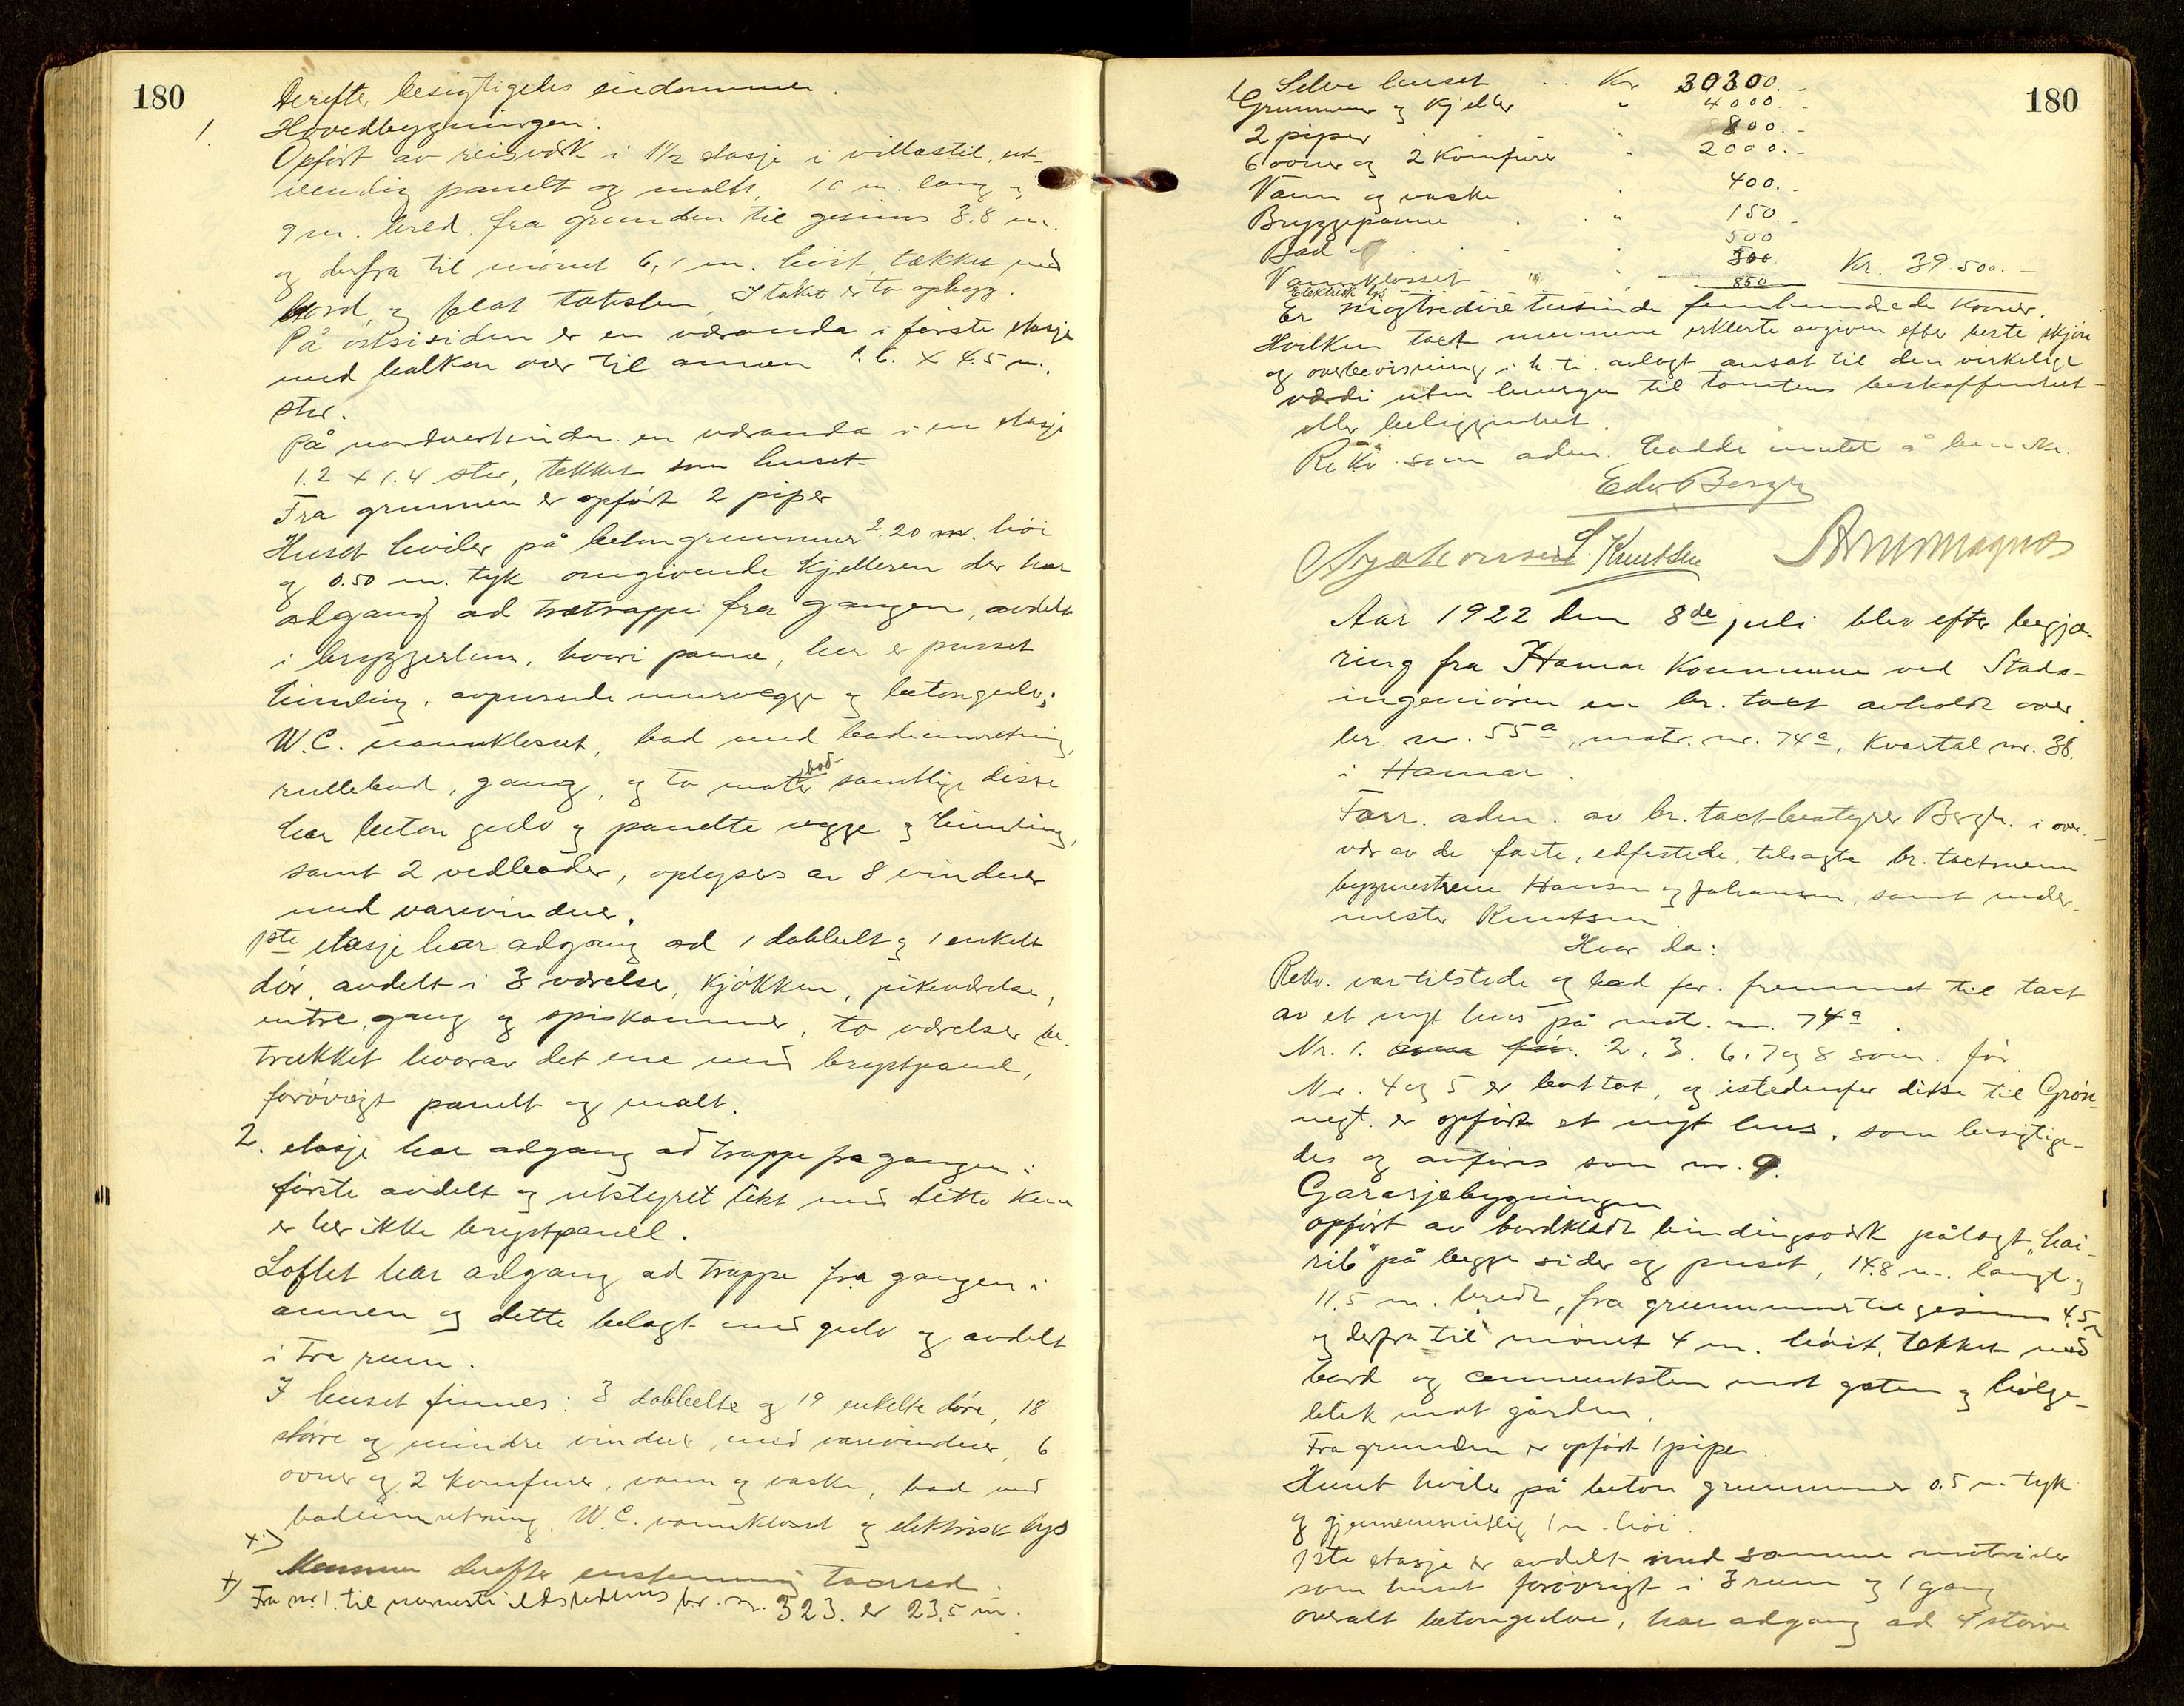 180
Derefter besigtigedes eiendommen.
1. Hovedbygningen.
Opført av reisverk i 1 1/2 etasje i villastil, ut-
vendig panelt og malt, 10 m. lang og
9 m. bred. fra grunden til gesims 3.8 m.
og derfra til mønet 6,1 m. høit, tækket med
bord og flat taksten. I taket er to opbygg.
På østsisiden er en veranda i første etasje
med balkon over til annen 1.6. x 4.5 m.
stor.
På nordvestsiden en veranda i en etasje
1.2 x 1.4 stor, tekket som huset.
Fra grunnen er opført 2 piper
Huset hviler på betongrunnmur 2.20 m. høi
og 0.50 m. tyk omgivende kjelleren der har
adgang ad trætrappe fra gangen, avdelt
i bryggerhus, hvori panne, her er pusset
himling, avpussede murvegge og betongulv;
W.C. vannkloset, bad med badeinnretning,
rullebod, gang, og to matbod samtlige disse
har beton gulv og panelte vegge og himling,
samt 2 vedboder, oplyses av 8 vinduer
med varevinduer.
1ste etasje har adgang ad 1 dobbelt og 1 enkelt
dør, avdelt i 3 værelser, kjøkken, pikeværelse,
entre, gang og spiskammer, to værelser be-
trukket hvorav det ene med brystpanel,
forøvrigt panelt og malt.
2. etasje har adgang ad trappe fra gangen i
første avdelt og utstyret likt med dette kun
er her ikke brystpanel.
Loftet har adgang ad trappe fra gangen i
annen og dette belagt med gulv og avdelt
i tre rum.
I huset finnes: 3 dobbelte og 19 enkelte døre, 18
større og mindre vinduer, med varevinduer, 6
ovner og 2 komfurer, vann og vaske, bad med
badeinnretning, W.C. vannkloset og elektrisk lys
x) Mennene derefter enstemmig
+) Fra nr. 1. til nærmeste ildsted br. nr. 323. er 23,5 m.
180
1) Selve huset Kr 30300.-
Grunnmur og kjeller " 4000.-
2 piper " 800.-
6 ovner og 2 komfurer " 2000.-
Vann og vaske " 400.-
Bryggepanne " 150.-
Bad 500
Vannklosset " 500
Elektrisk lys 850 Kr. 39.500.-
Er nigtredive tusinde femhundrede kroner.
Hvilken takst mennene erklerte avgiven efter beste skjøn
og overbevisning i h. t. avlagt ansat til den virkelige
værdi uten hensyn til tomtens beskaffenhet
eller beliggenhet.
Rekv. som adm. hadde intet å bemerke.
Edv. Bergh
L. Knutsen
Aar 1922 den 8de juli blev efter begjæ-
ring fra Hamar Kommune ved Stads-
ingeniøren en br. takst avholdt over
br. nr. 55a, matr. nr. 74a, Kvartal nr. 38.
i Hamar.
Forr. adm. av br. takstbestyrer Bergh. i over-
vær av de faste, edfestede, tilsagte br. takstmenn
bygmestrene Hansen og Johansen, samt
mester Knutsen.
Hvor da:
Rekv. var tilstede og bad for. fremmet til takst
av et nyt hus på matr. nr. 74a.
Nr. 1. som før. 2. 3. 6, 7 og 8 som før
Nr. 4 og 5 er borttat, og istedenfor disse til Grøn-
negt. er opført et nyt hus, som besigtige-
des og anføres som nr. 9.
Garasjebygningen
opført av bordklædt bindingsverk pålagt „hai-
rib" på begge sider og puset, 14.8 m. langt og
11.5 m. bredt, fra grunnmur til gesims 4.5 m
og derfra til mønet 4 m. høit, tekket med
bord og cementsten mot gaten og bølge-
blek mot gården.
Fra grunden er opført 1 pipe.
Huset hviler på beton grunnmur 0.5 m tyk
og gjennemsnitlig 1 m. høi.
1ste etasje er avdelt med samme materialer
som huset forøvrigt i 3 rum og 1 gang
overalt betongulve, har adgang ad 4 større